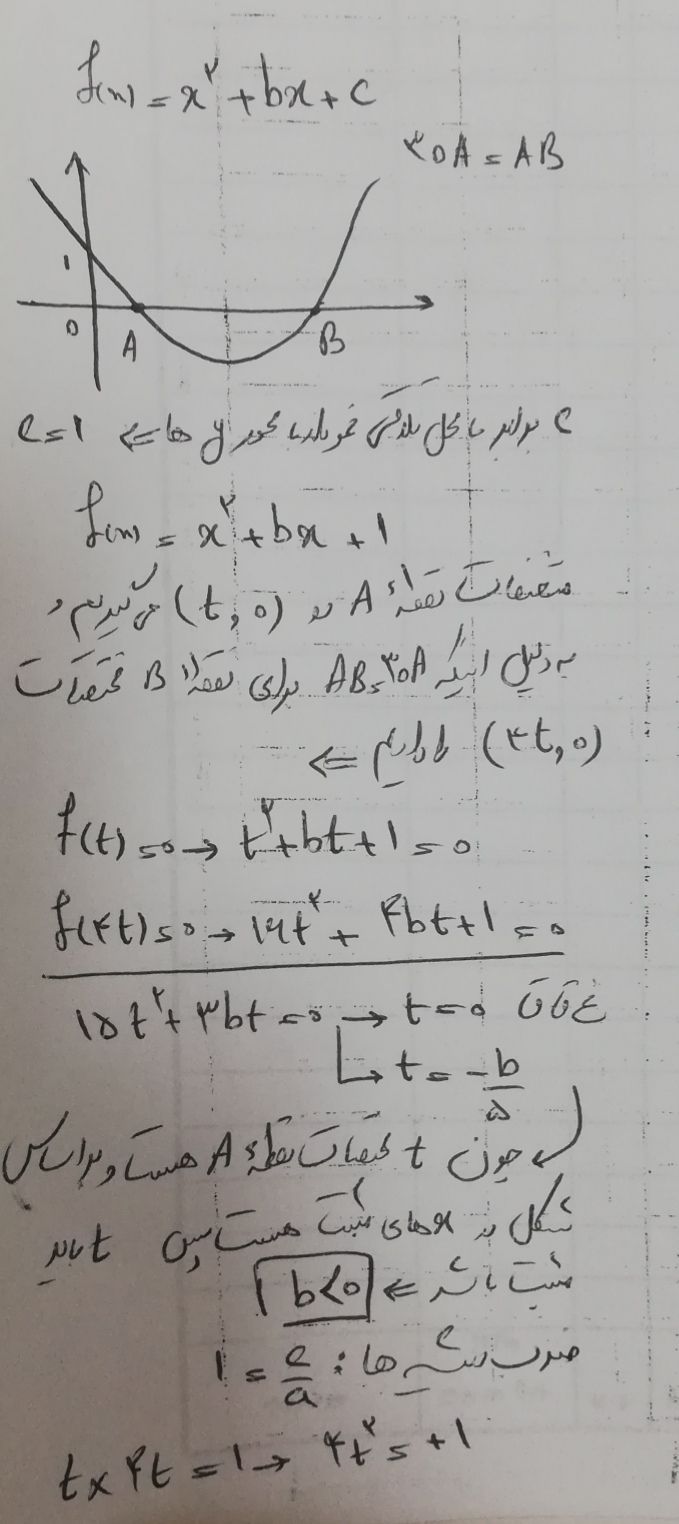 f(x) = x² + bx + c
۳OA = AB
۱
o A B
c برابر با محل تلاقی نمودار با محور y ها ⇐ c = ۱
f(x) = x² + bx + ۱
مختصات نقطهٔ A رو (t, ۰) می‌گیریم و
به دلیل اینکه AB = ۳OA برای نقطهٔ B مختصات
(۴t, ۰) را داریم ⇐
f(t) = ۰ → t² + bt + ۱ = ۰
f(۴t) = ۰ → ۱۶t² + ۴bt + ۱ = ۰
۱۵t² + ۳bt = ۰ → t = ۰ غ ق ق
↳ t = -b/۵
چون t مختصات نقطهٔ A هست و براساس
شکل در xهای مثبت هست پس t باید
مثبت باشد ⇐ b < ۰
ضرب ریشه ها : c/a = ۱
t × ۴t = ۱ → ۴t² = +۱